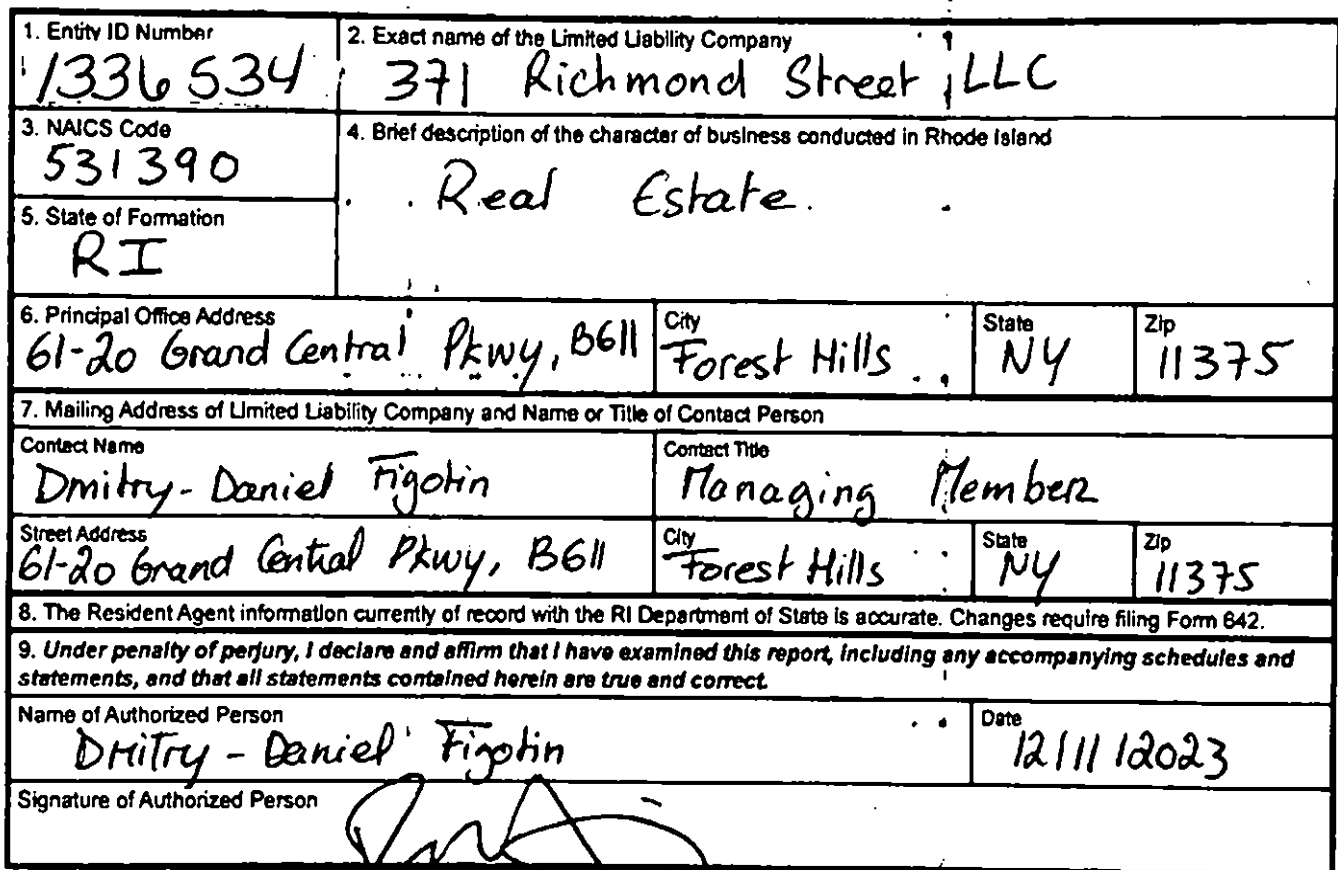 1. Entity ID Number
1336534
2. Exact name of the Limited Liability Company
371 Richmond Street, LLC
3. NAICS Code
531390
4. Brief description of the character of business conducted in Rhode Island
Real Estate.
5. State of Formation
RI
6. Principal Office Address
61-20 Grand Central Pkwy, B611
City
Forest Hills
State
NY
Zip
11375
7. Mailing Address of Limited Liability Company and Name or Title of Contact Person
Contact Name
Dmitry-Daniel Figotin
Contact Title
Managing Member
Street Address
61-20 Grand Central Pkwy, B611
City
Forest Hills
State
NY
Zip
11375
8. The Resident Agent information currently of record with the RI Department of State is accurate. Changes require filing Form 642.
9. Under penalty of perjury, I declare and affirm that I have examined this report, including any accompanying schedules and
statements, and that all statements contained herein are true and correct.
Name of Authorized Person
Dmitry-Daniel Figotin
Date
12/11/2023
Signature of Authorized Person